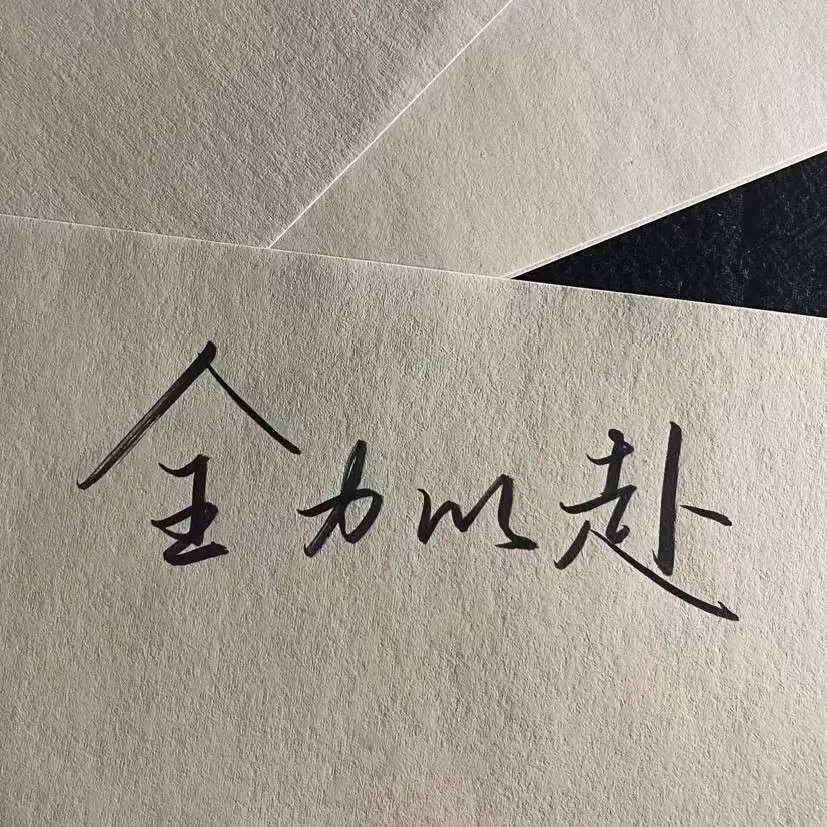 全力以赴